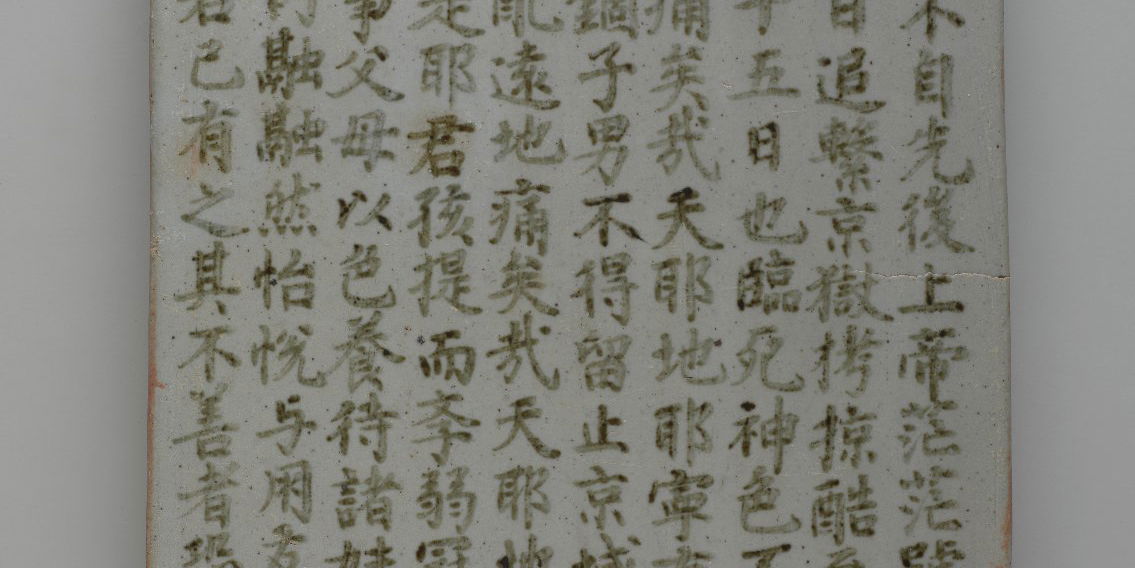 不自先後上帝茫茫
日追繫京獄拷掠酷
十五日也臨死神色不
痛矣哉天耶地耶寧
錮子男不得留止京城
亂遠地痛矣哉天耶地
是耶君孩提而孝弱冠
事父母以色養待諸妹
融融然怡悅与用
君已有之其不善者恐